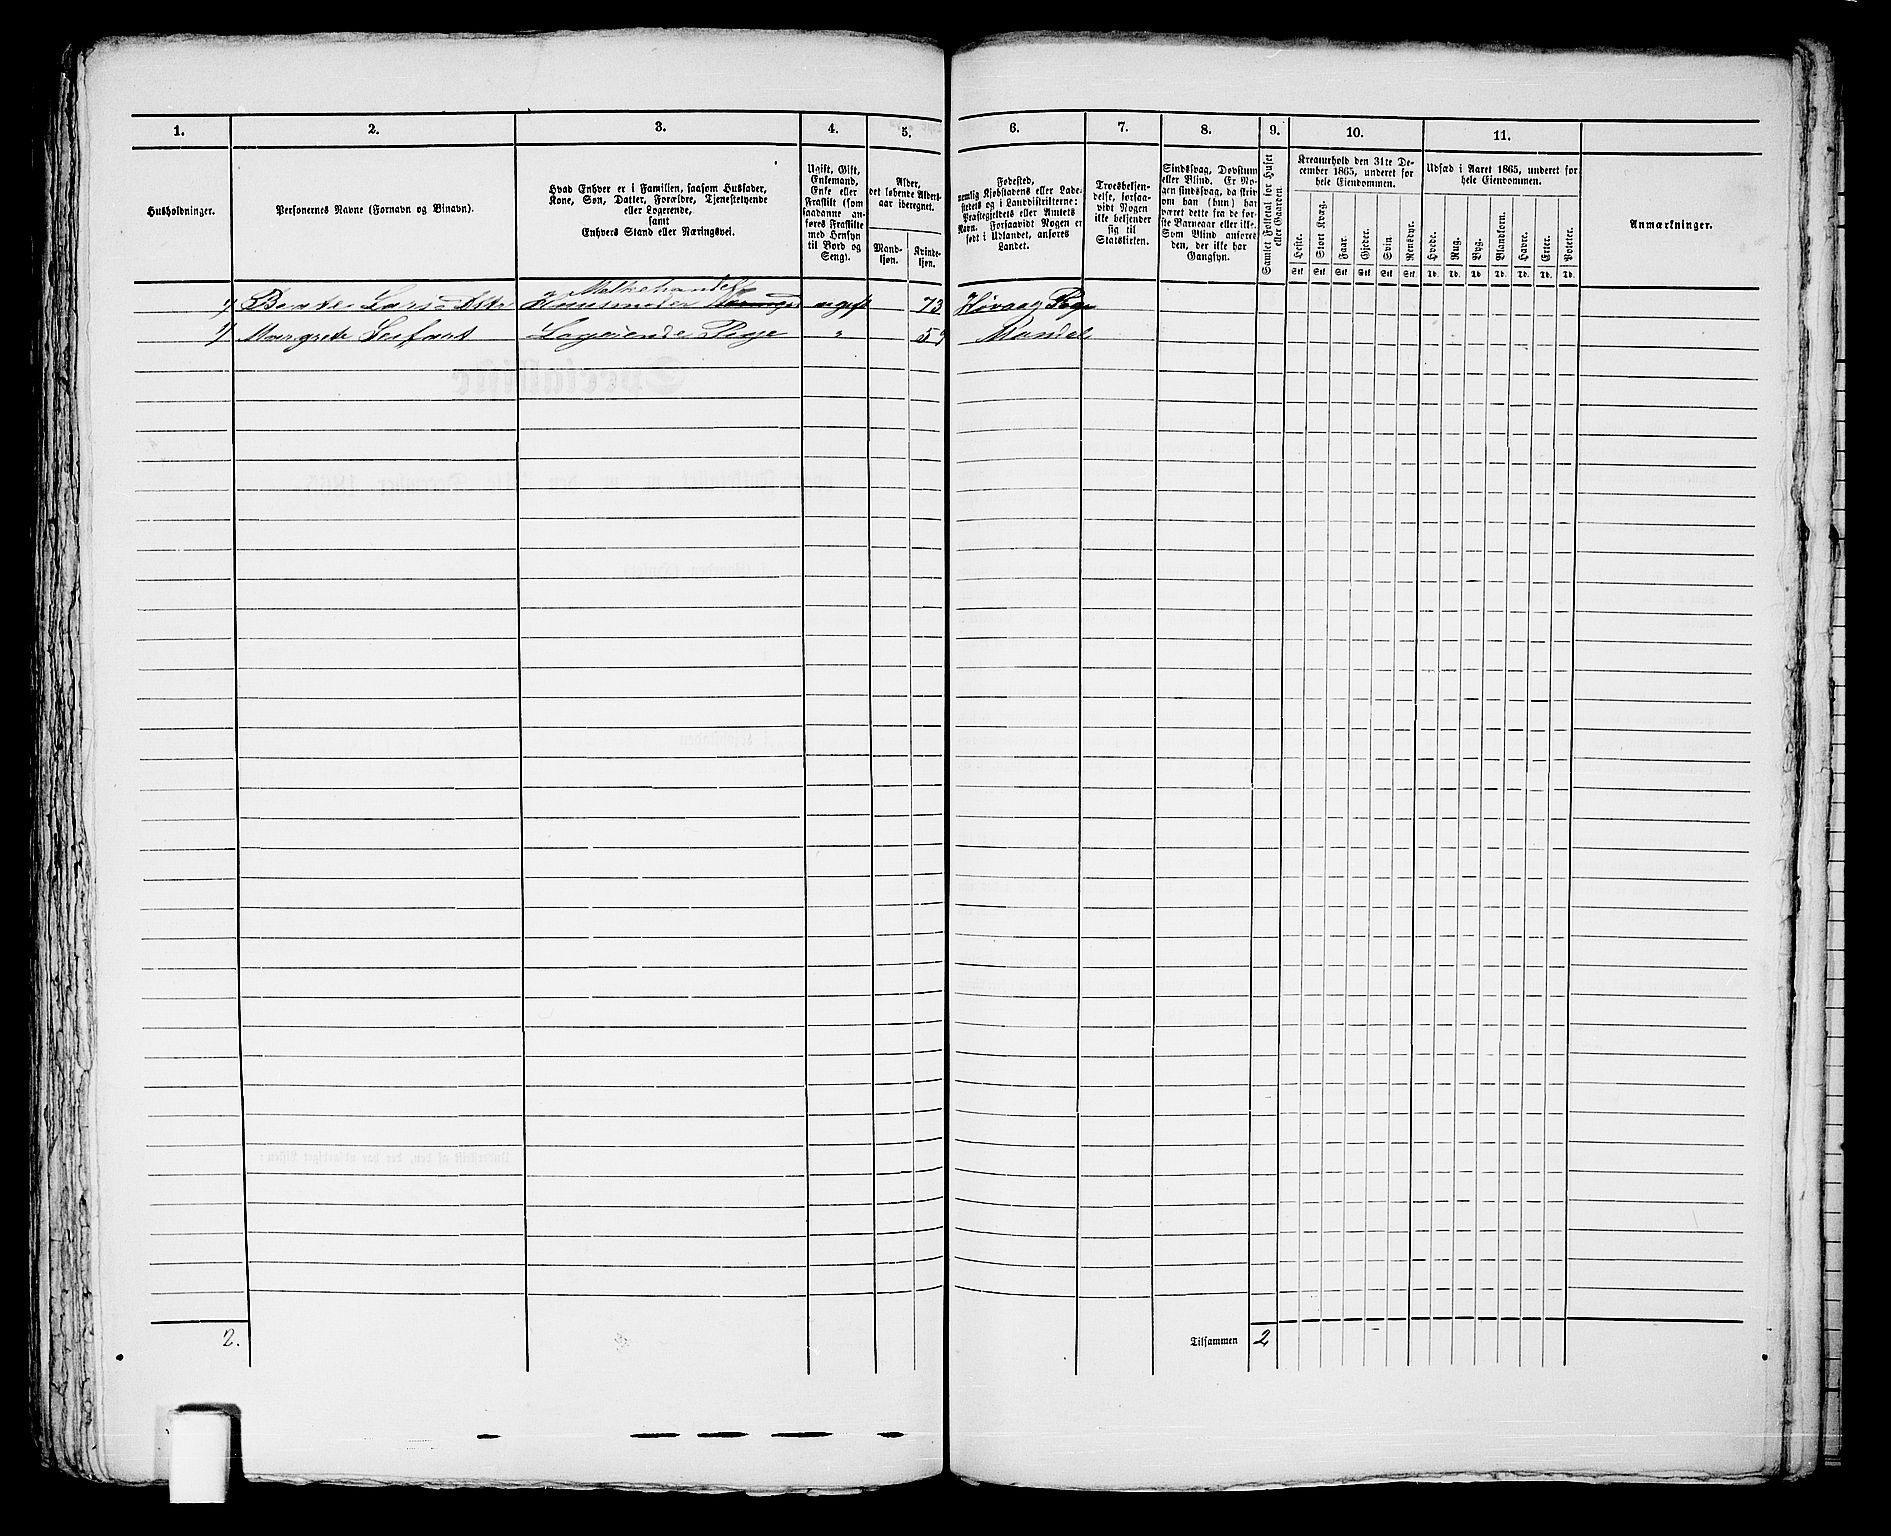 1. 2. 3. 4. 5. 6. 7. 8. 9. 10. 11.
Husholdninger.
Personernes Navne (Fornavn og Binavn).
Hvad Enhver er i Familien, saasom Husfader,
Kone, Søn, Datter, Forældre, Tjenestetyende
eller Logerende,
samt
Enhvers Stand eller Næringsvei.
Ugift, Gift,
Enkemand,
Enke eller
Fraskilt (som
saadanne an-
føres Fraskilte
med Hensyn
til Bord og
Seng).
Alder,
det løbende Alders-
aar iberegnet.
Mand-
kjøn.
Kvinde-
kjøn.
Fødested,
nemlig Kjøbstadens eller Lade-
stedets og i Landdistrikterne:
Præstegjeldets eller Amtets
Navn. Forsaavidt Nogen er
født i Udlandet, anføres
Landet.
Troesbekjen-
delse, forsaa-
vidt Nogen
ikke bekjender
sig til
Statskirken.
Sindssvag, Døvstum
eller Blind. Er No-
gen sindssvag, da skriv
om han (hun) har
været dette fra de før-
ste Barneaar eller ikke.
Som Blind anføres
den, der ikke har
Gangsyn.
Samlet Folketal for Huset
eller Gaarden.
Kreaturhold den 31te De-
cember 1865, underet for
hele Eiendommen.
Heste. Stort Kvæg. Faar. Gjeder. Svin. Rensdyr.
Stk Stk Stk Stk Stk Stk
Udsæd i Aaret 1865, underet for
hele Eiendommen.
Hvede. Rug. Byg. Blandkorn. Havre. Erter. Poteter.
Td. Td. Td. Td. Td. Td. Td.
Anmærkninger.
1/ Husmoder ugift 73 Høvaag
1/ Margrete Logerende Pige " Mandal
2. Tilsammen 2